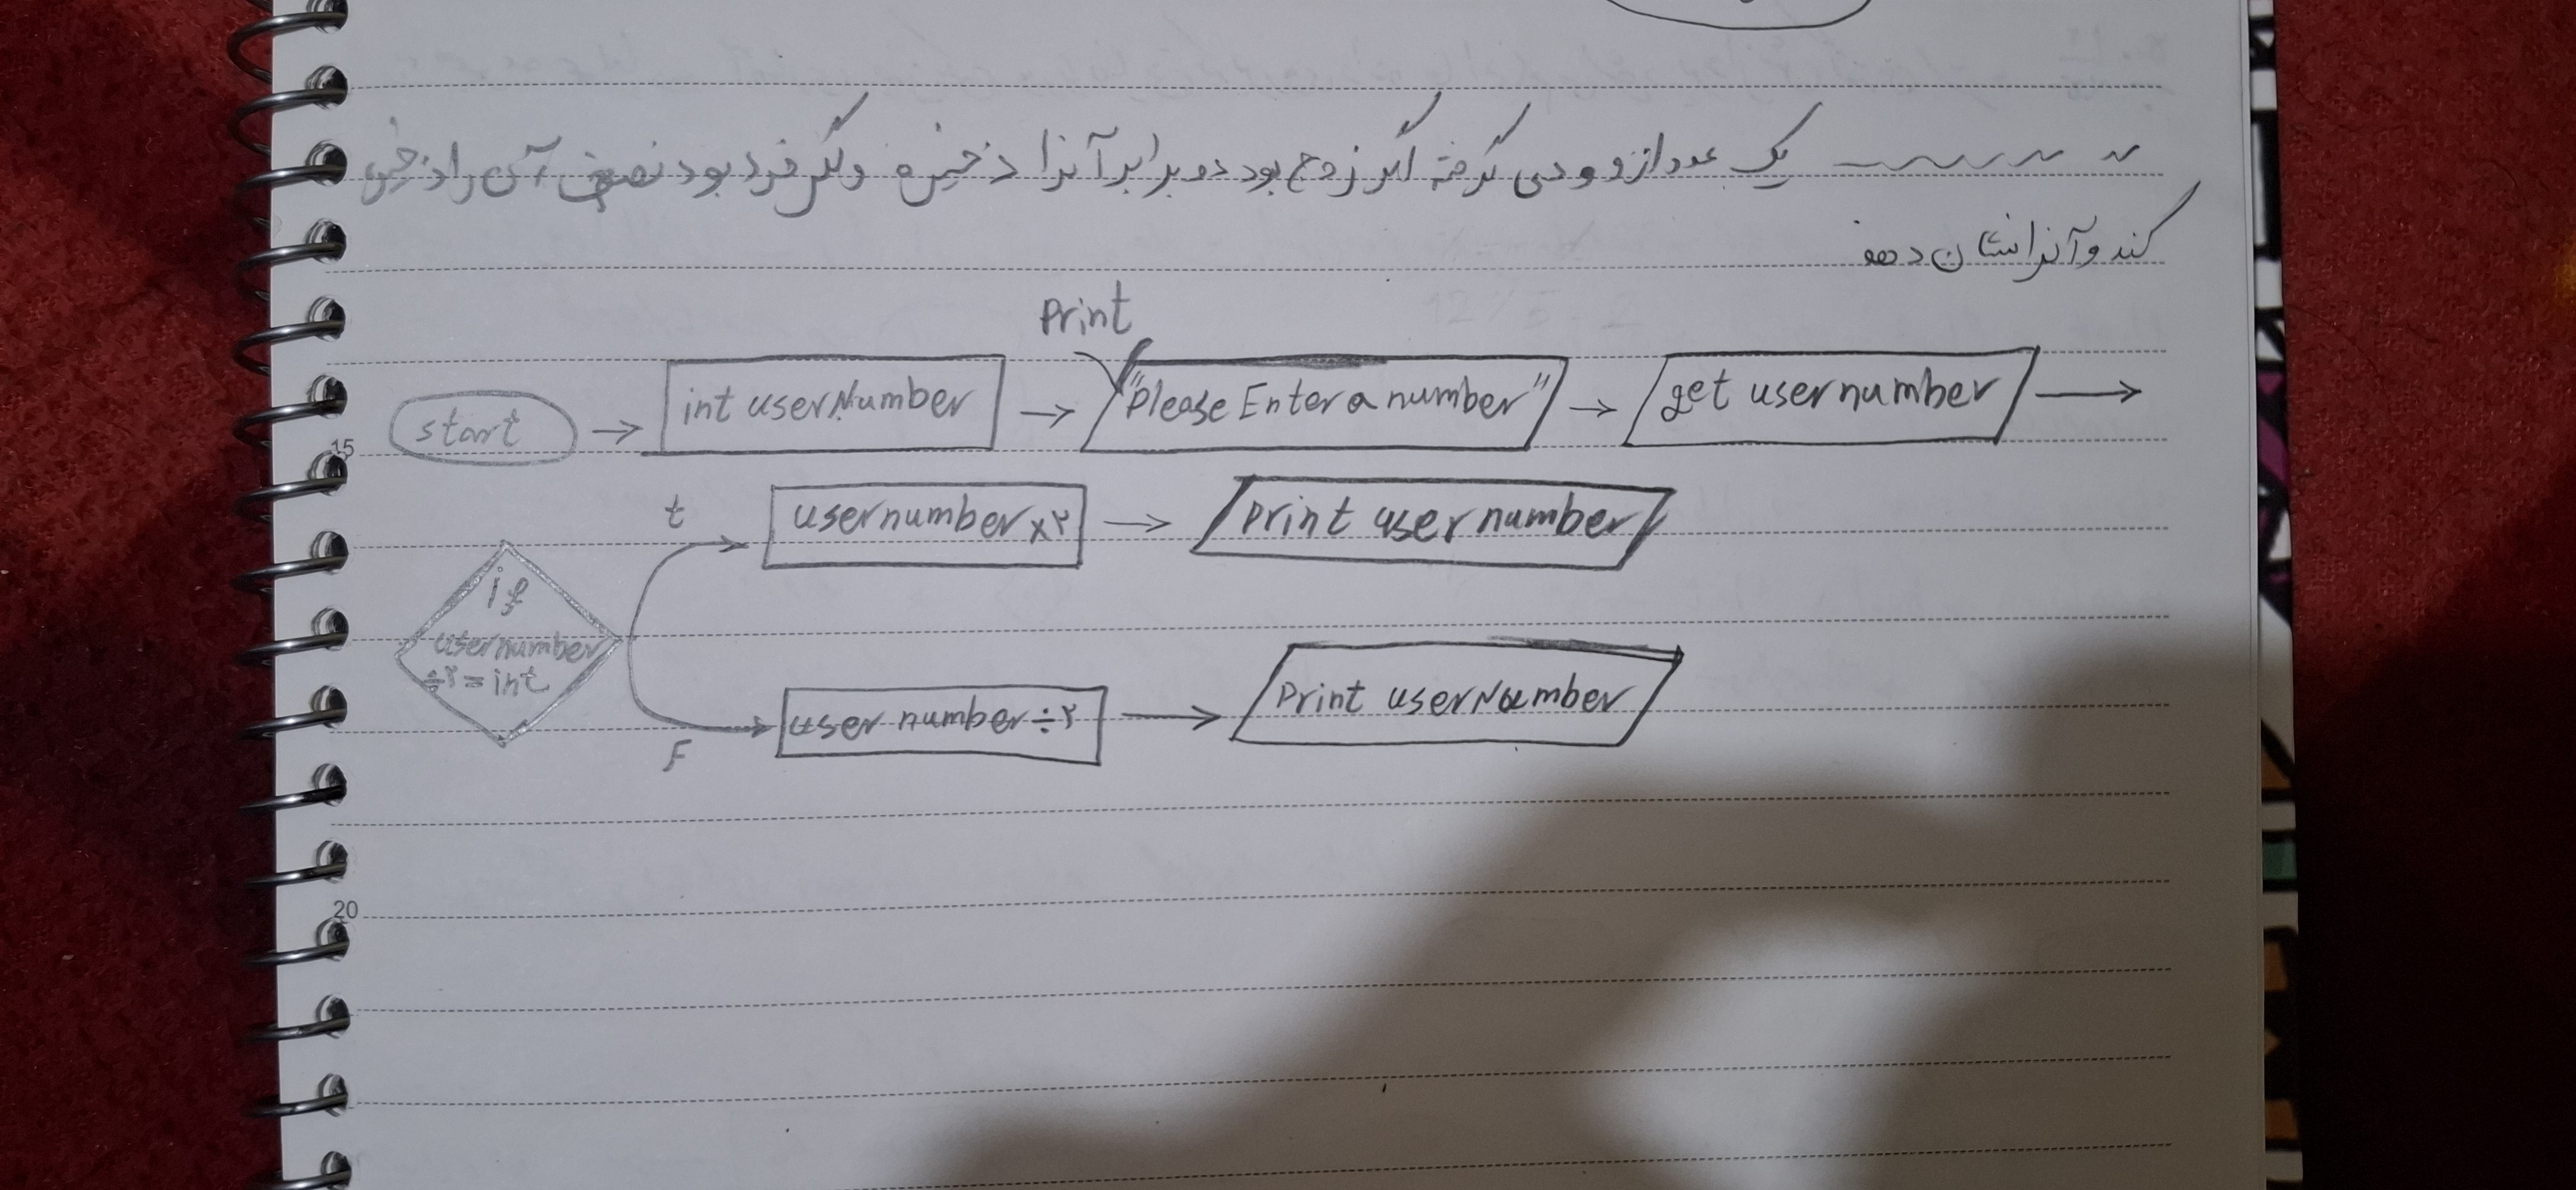 یک عدد از ورودی گرفته اگر زوج بود دو برابر آنرا ذخیره و اگر فرد بود نصف آن را ذخیره
کند و آنرا نشان دهد
Print
start → int userNumber → "Please Enter a number" → get usernumber →
15
t usernumber×۲ → print usernumber
if
usernumber
÷۲=int
F user number÷۲ → Print userNumber
20